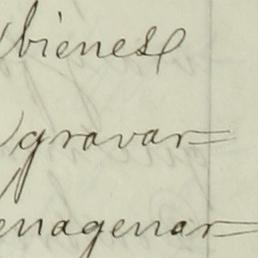 bienes
gravar=
enagenar=